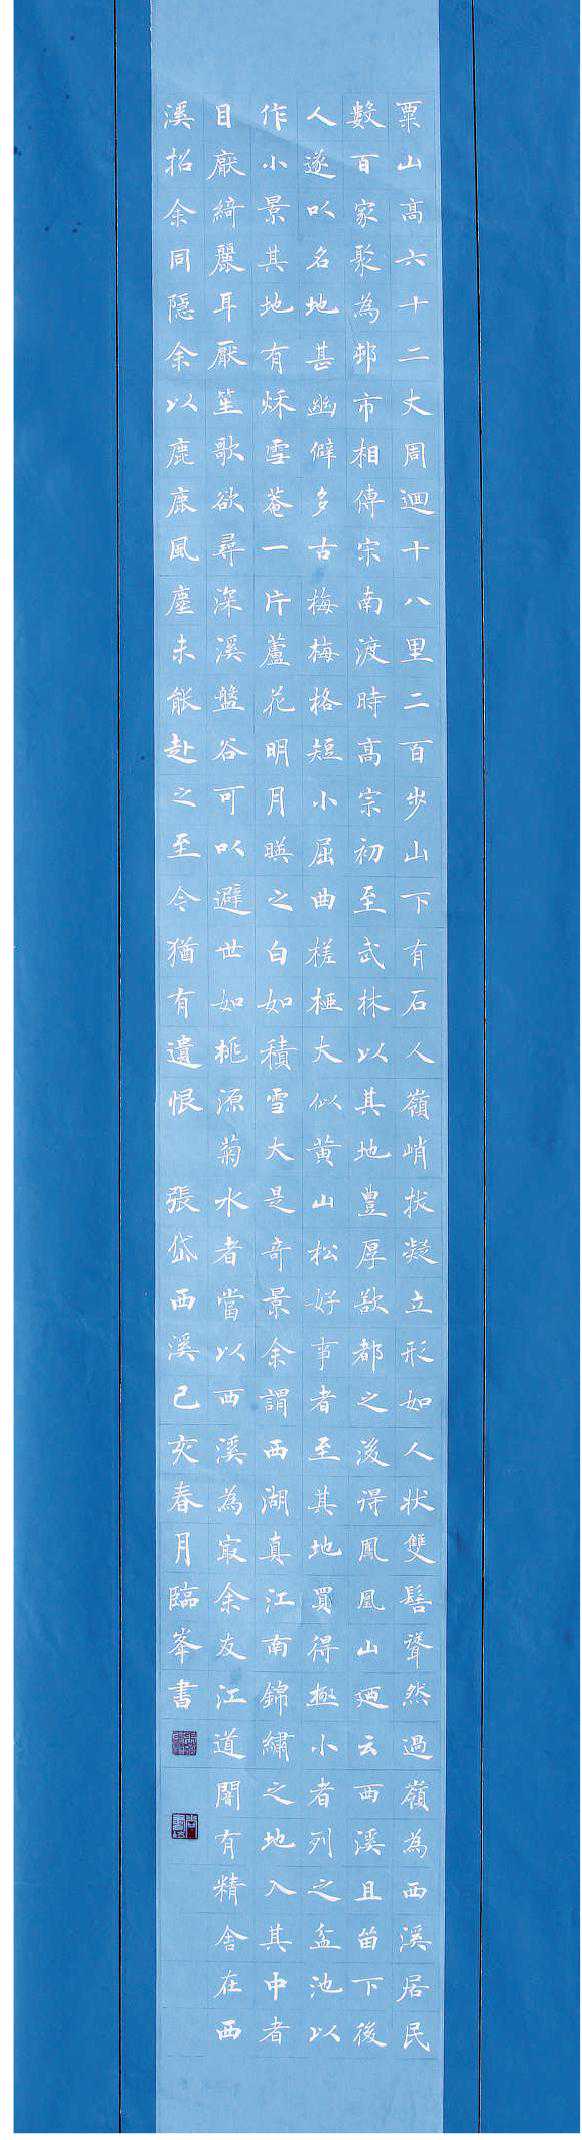 粟山高六十二丈周迴十八里二百步山下有石人嶺峭拔凝立形如人状雙髻聳然過嶺為西溪居民
數百家聚為邨市相傳宋南渡時高宗初至武林以其地豊厚欲都之後得鳳凰山廼云西溪且留下後
人遂以名地甚幽僻多古梅梅格短小屈曲槎枒大似黄山松好事者至其地買得極小者列之盆池以
作小景其地有秌雪菴一片蘆花明月暎之白如積雪大是奇景余謂西湖真江南錦繡之地入其中者
目厭綺麗耳厭笙歌欲尋深溪盤谷可以避世如桃源菊水者當以西溪為㝡余友江道闇有精舍在西
溪招余同隱余以鹿鹿風塵未能赴之至今猶有遺恨 張岱西溪己亥春月臨峯書